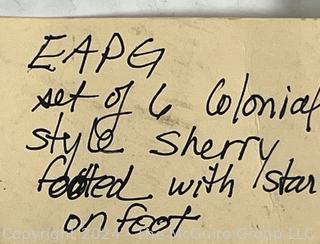 EAPG
set of 6 Colonial
style sherry
footed with star
on foot
Copyright 2024 - The McGuire Group LLC